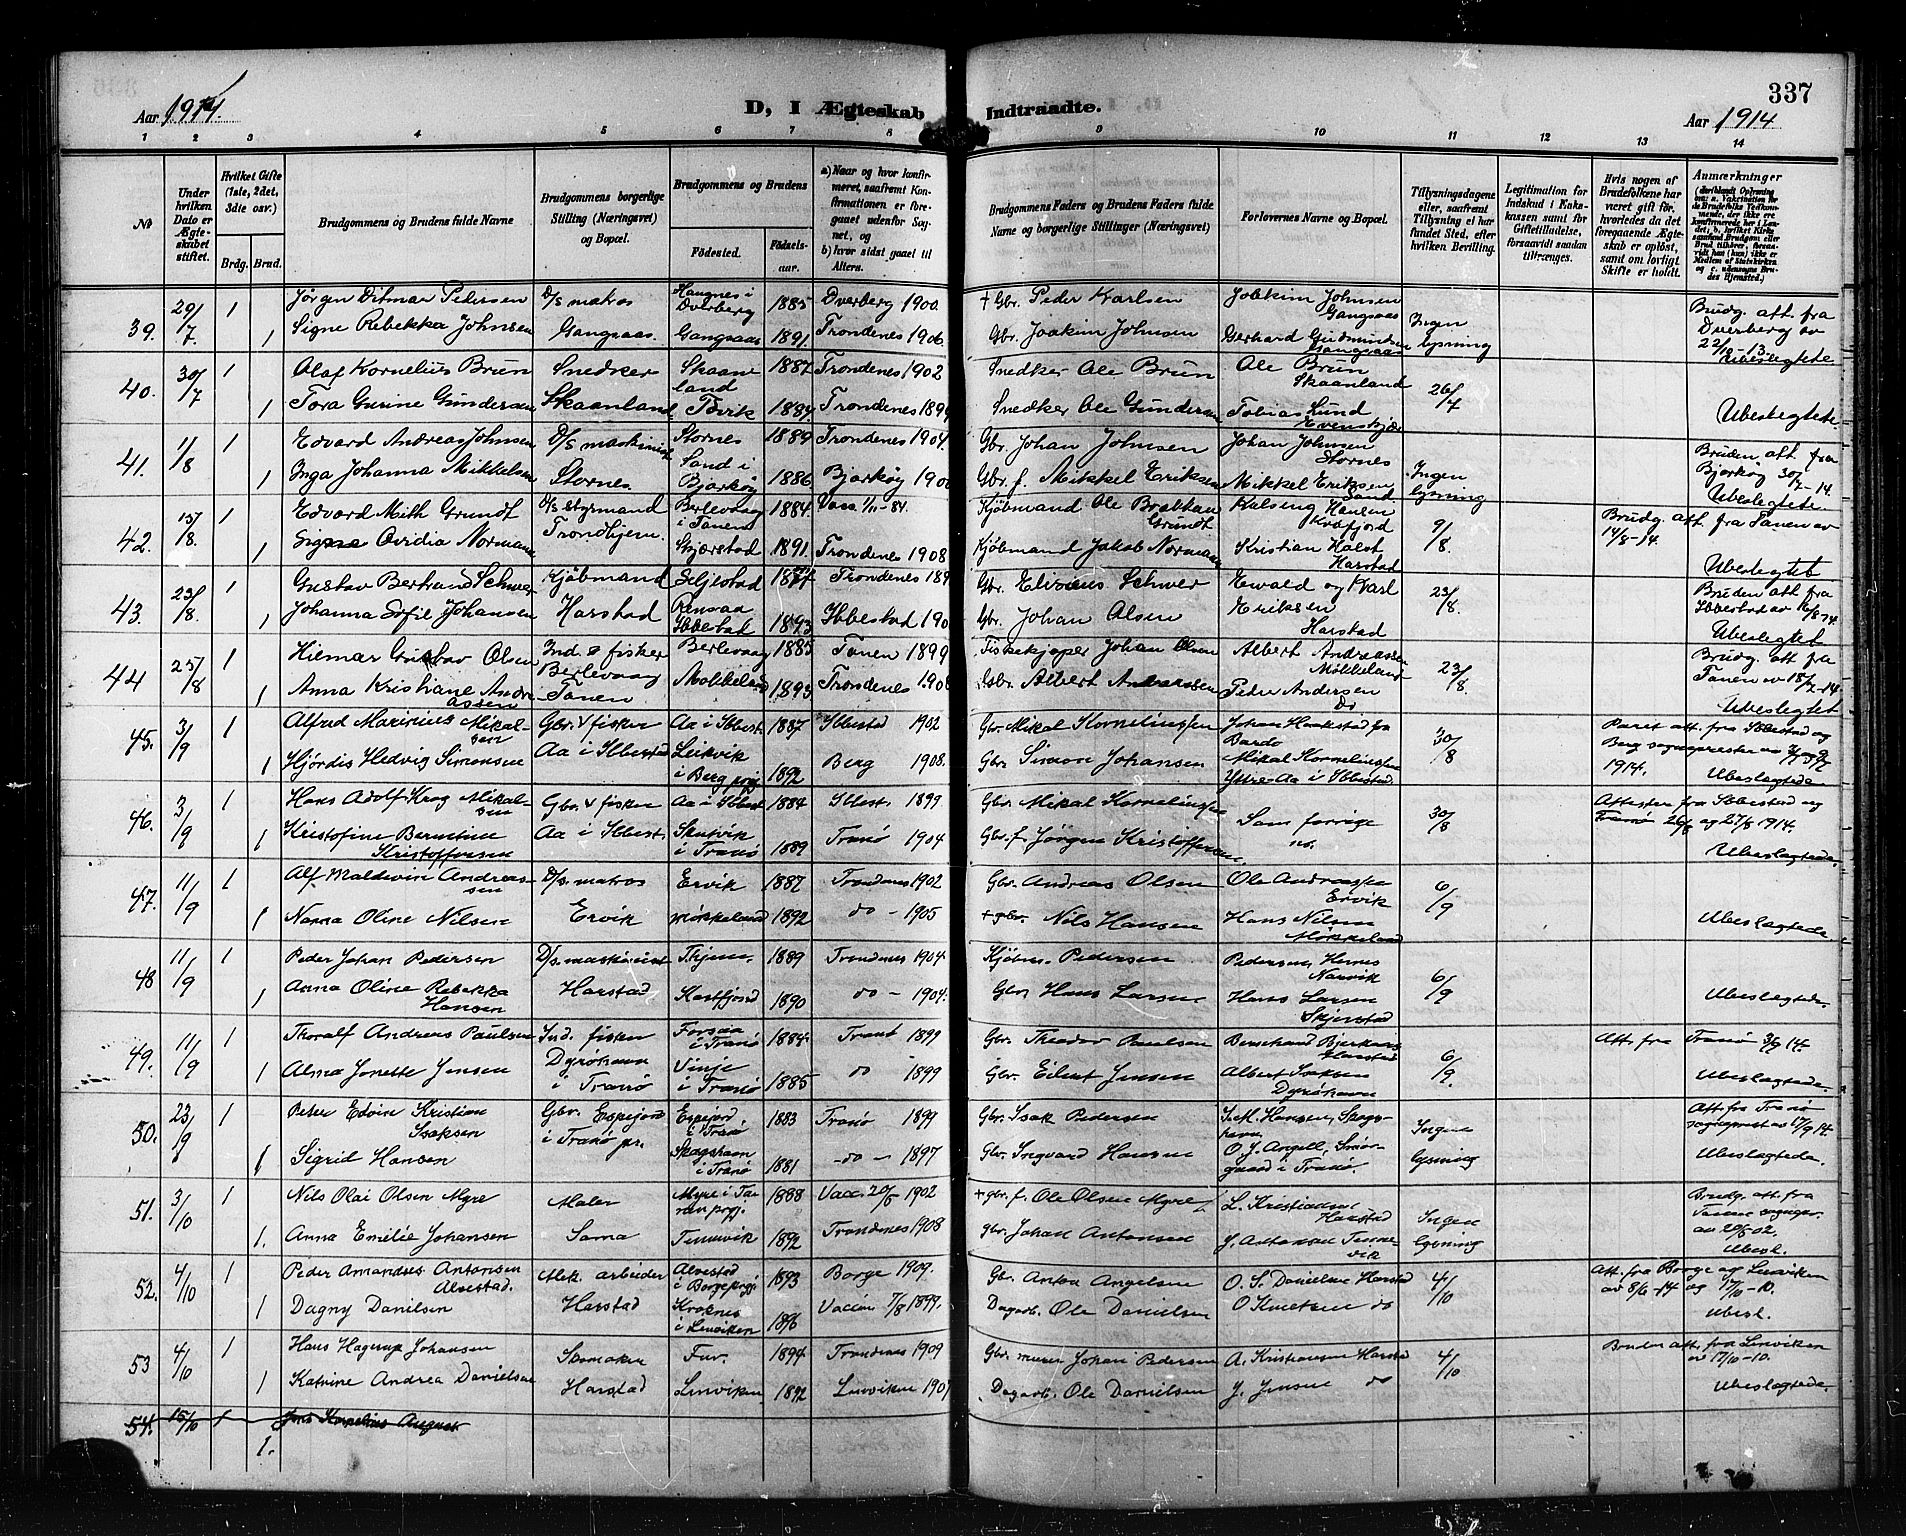 337
Aar 1914.
D, I Ægteskab Indtraadte.
Aar 1914
1 2 3 4 5 6 7 8 9 10 11 12 13 14
No
Under hvilken Dato er Ægteskabet stiftet.
Hvilket Gifte (1ste, 2det, 3die osv.)
Brdg. Brud.
Brudgommens og Brudens fulde Navne
Brudgommens borgerlige Stilling (Næringsvei) og Bopæl.
Brudgommens og Brudens
Fødested. Fødselsaar.
a) Naar og hvor konfirmeret, saafremt Konfirmationen er foregaaet udenfor Sognet, og
b) hvor sidst gaaet til Alters.
Brudgommens Faders og Brudens Faders fulde Navne og borgerlige Stillinger (Næringsvei)
Forlovernes Navne og Bopæl.
Tillysningsdagene eller, saafremt Tillysning ei har fundet Sted, efter hvilken Bevilling.
Legitimation for Indskud i Enkekassen samt for Giftetilladelse, forsaavidt saadan tiltrænges.
Hvis nogen af Brudefolkene har været gift før, hvorledes da det foregaaende Ægteskab er opløst, samt om lovligt Skifte er holdt.
Anmærkninger
39. 29/7. 1 Jörgen Ditmar Pedersen D/s matros Haugnes i Dverberg 1885 Dverberg 1900. + Gbr. Peder Karlsen Joakim Johnsen Gangsaas Ingen lysning Brudg. att. fra Dverberg av 22/10-13.
1 Signe Rebekka Johnsen Gangsaas. Gangsaas 1891. Trondenes 1906 Gbr. Joakim Johnsen Gerhard Gudmundsen Gangsaas Ubeslegtede
40. 30/7 1 Olaf Kornelius Brun Snedker Skaanland 1887 Trondenes 1902 Snedker Ole Brun Ole Brun Skaanland 26/7
1 Tora Gurine Gundersen Skaanland Trondenes Snedker Ole Gundersen Tobias Lund Evenskjær Ubeslegtede
41. 1/8 1 Edvard Andreas Johnsen D/s maskinist Stornes 1889 Trondenes 1904. Gbr. Johan Johnsen Johan Johnsen Stornes Ingen lysning Bruden att. fra Bjarkøy 30/7-14.
1 Inga Johanna Mikkelsen Stornes. Sand i Bjarkøy 1886 Bjarkøy Gbr. f. Mikkel Eriksen Mikkel Eriksen Sand Ubeslegtede
42. 15/8. 1 Edvard Mith Grundt D/s styrmand Berlevaag i Tanen 1884. Vacc. 1/11-84. Kjøbmand Ole Grundt Hansen 9/8. Brudg. att. fra Tanen av 14/8-14.
1 Signe Ovidia Normann Trondhjem. 1891. Trondenes 1908 Kjøbmand Jakob Normann Kristian Holst Harstad Ubeslegtet
43. 23/8. 1 Gustav Bertrand Schwer Kjøbmand Seljestad Trondenes Gbr. Schwer Ewald og Karl 23/8. Bruden att. fra Ibbestad av 16/8-14
1 Johanna Sofie Johansen Harstad Rensaa Ibbestad 1893 Ibbestad Gbr. Johan Olsen Eriksen Harstad Ubeslegtet
44 25/8 1 Hilmar Gustav Olsen Ind. & fisker Berlevaag 1885 Tanen 1899 Fiskekjøper Johan Olsen Albert Andreassen Møkkeland 23/8 Brudg. att fra Tanen av 18/7-14
1 Anna Kristiane Andreassen Berlevaag Tanen Møkkeland 1893 Trondenes 1908 Gbr. Albert Andreassen Peder Andersen Do Ubeslegtet
45. 3/9 1 Alfred Marinius Mikalsen Gbr. & fisker Aa i Ibbest. 1887 Ibbestad 1902 Gbr. Mikal Kornelinssen Johan Haakstad fra Bardo 30/8 Paret att. fra Ibbestad og Berg sogneprester
1 Hjördis Hedvig Simonsen Aa i Ibbestad Leikvik i Berg prgj. 1892 Berg 1908. Gbr. Simon Johansen Mikal Kornelinssen Ytre-Aa i Ibbestad 1914. Ubeslagtede
46. 3/9 1 Hans Adolf Krog Mikalsen Gbr. & fisker Aa i Ibbest 1884 Ibbest. 1899 Gbr. Mikal Kornelinssen Som forrige no. 30/8 Attester fra Ibbestad og Tranö 26/8 og 27/8 1914.
1 Kristofine Berntine Kristoffersen Aa i Ibbest. Skutvik i Tranö 1889 Tranö 1904 Gbr. f. Jörgen Kristoffersen. Ubeslagtede.
47. 11/9 1 Alf Maldevin Andreassen D/s. matros Ervik 1887 Trondenes 1902 Gbr. Andreas Olsen Ole Andreassen Ervik 6/9
1 Nanna Oline Nilsen Ervik Møkkeland 1892 do - 1905 + gbr. Nils Hansen Hans Nilsen Møkkeland Ubeslagtede.
48 11/9 1 Peder Johan Pedersen D/s. maskinist 1889 Trondenes 1904. Kjøbm. Pedersen Pedersen, Narvik 6/9
1 Anna Oline Rebekka Hansen Harstad Kastfjord 1890 do - 1904. Gbr. Hans Larsen Hans Larsen Ubeslagtede.
49. 11/9 1 Thoralf Andreas Paulsen Ind. fisker Forsaa i Tranö 1884. Tranö 1899 Gbr. Theodor Paulsen Bernhard Bjerkan Harstad 6/9. Att. fra Tranö 3/9 14.
1 Alma Jonette Jensen Dyröhavn i Tranö Vinje i Tranö 1885 do 1899 Gbr. Eilert Jensen Albert Isaksen Dyröhavn Ubeslagtede.
50. 23/9 1 Peter Edvin Kristian Isaksen Gbr. Espejord i Tranö pr. Espejord i Tranö 1883 Tranö 1899 Gbr. Isak Pedersen Hansen, Skogshavn Ingen lysning Att. fra Tranö sogneprest av 17/9 14.
1 Sigrid Hansen Skogshavn i Tranö 1881 - do - 1897 Gbr. Ingvard Hansen O. J. Angell, i Tranö. Ubeslagtede.
51. 3/10 1 Nils Olai Olsen Myre Maler Myre i Tanen prgj. 1888 Vacc. 20/5 1902 + gbr. f. Ole Olsen Myre L. Kristiansen Harstad Ingen lysning Brudg. att. fra Tanen sogneprest av 20/5 02.
1. Anna Emilie Johansen Sama Tennevik 1892 Trondenes 1908 gbr. Johan Antonsen J. Antonsen Tennevik Ubesl.
52. 4/10 1 Peder Amandus Antonsen Alvestad Mek. arbeider Alvestad i Borge prgj. 1893 Borge 1909. Gbr. Anton Angelsen O. S. Danielsen Harstad 4/10 Att. fra Borge og Lenviken av 8/6-14 og 17/10-10.
1 Dagny Danilsen Harstad Kroknes i Lenviken 1896 Vaccin 7/8 1899. Dagarb. Ole Danielsen O Knutsen do Ubesl.
53 4/10 1 Hans Hagerup Johansen Skomaker 1894 Trondenes 1909 Gbr. murer Johan Pedersen A. Kristiansen Harstad 4/10 Bruden att. fra Lenviken av 17/10-10.
1 Katrine Andrea Danielsen Harstad Lenviken 1892 Lenviken Dagarb. Ole Danielsen J. Jensen do Ubeslagtede.
54. 15/10 1 Jens Kornelius August
1.